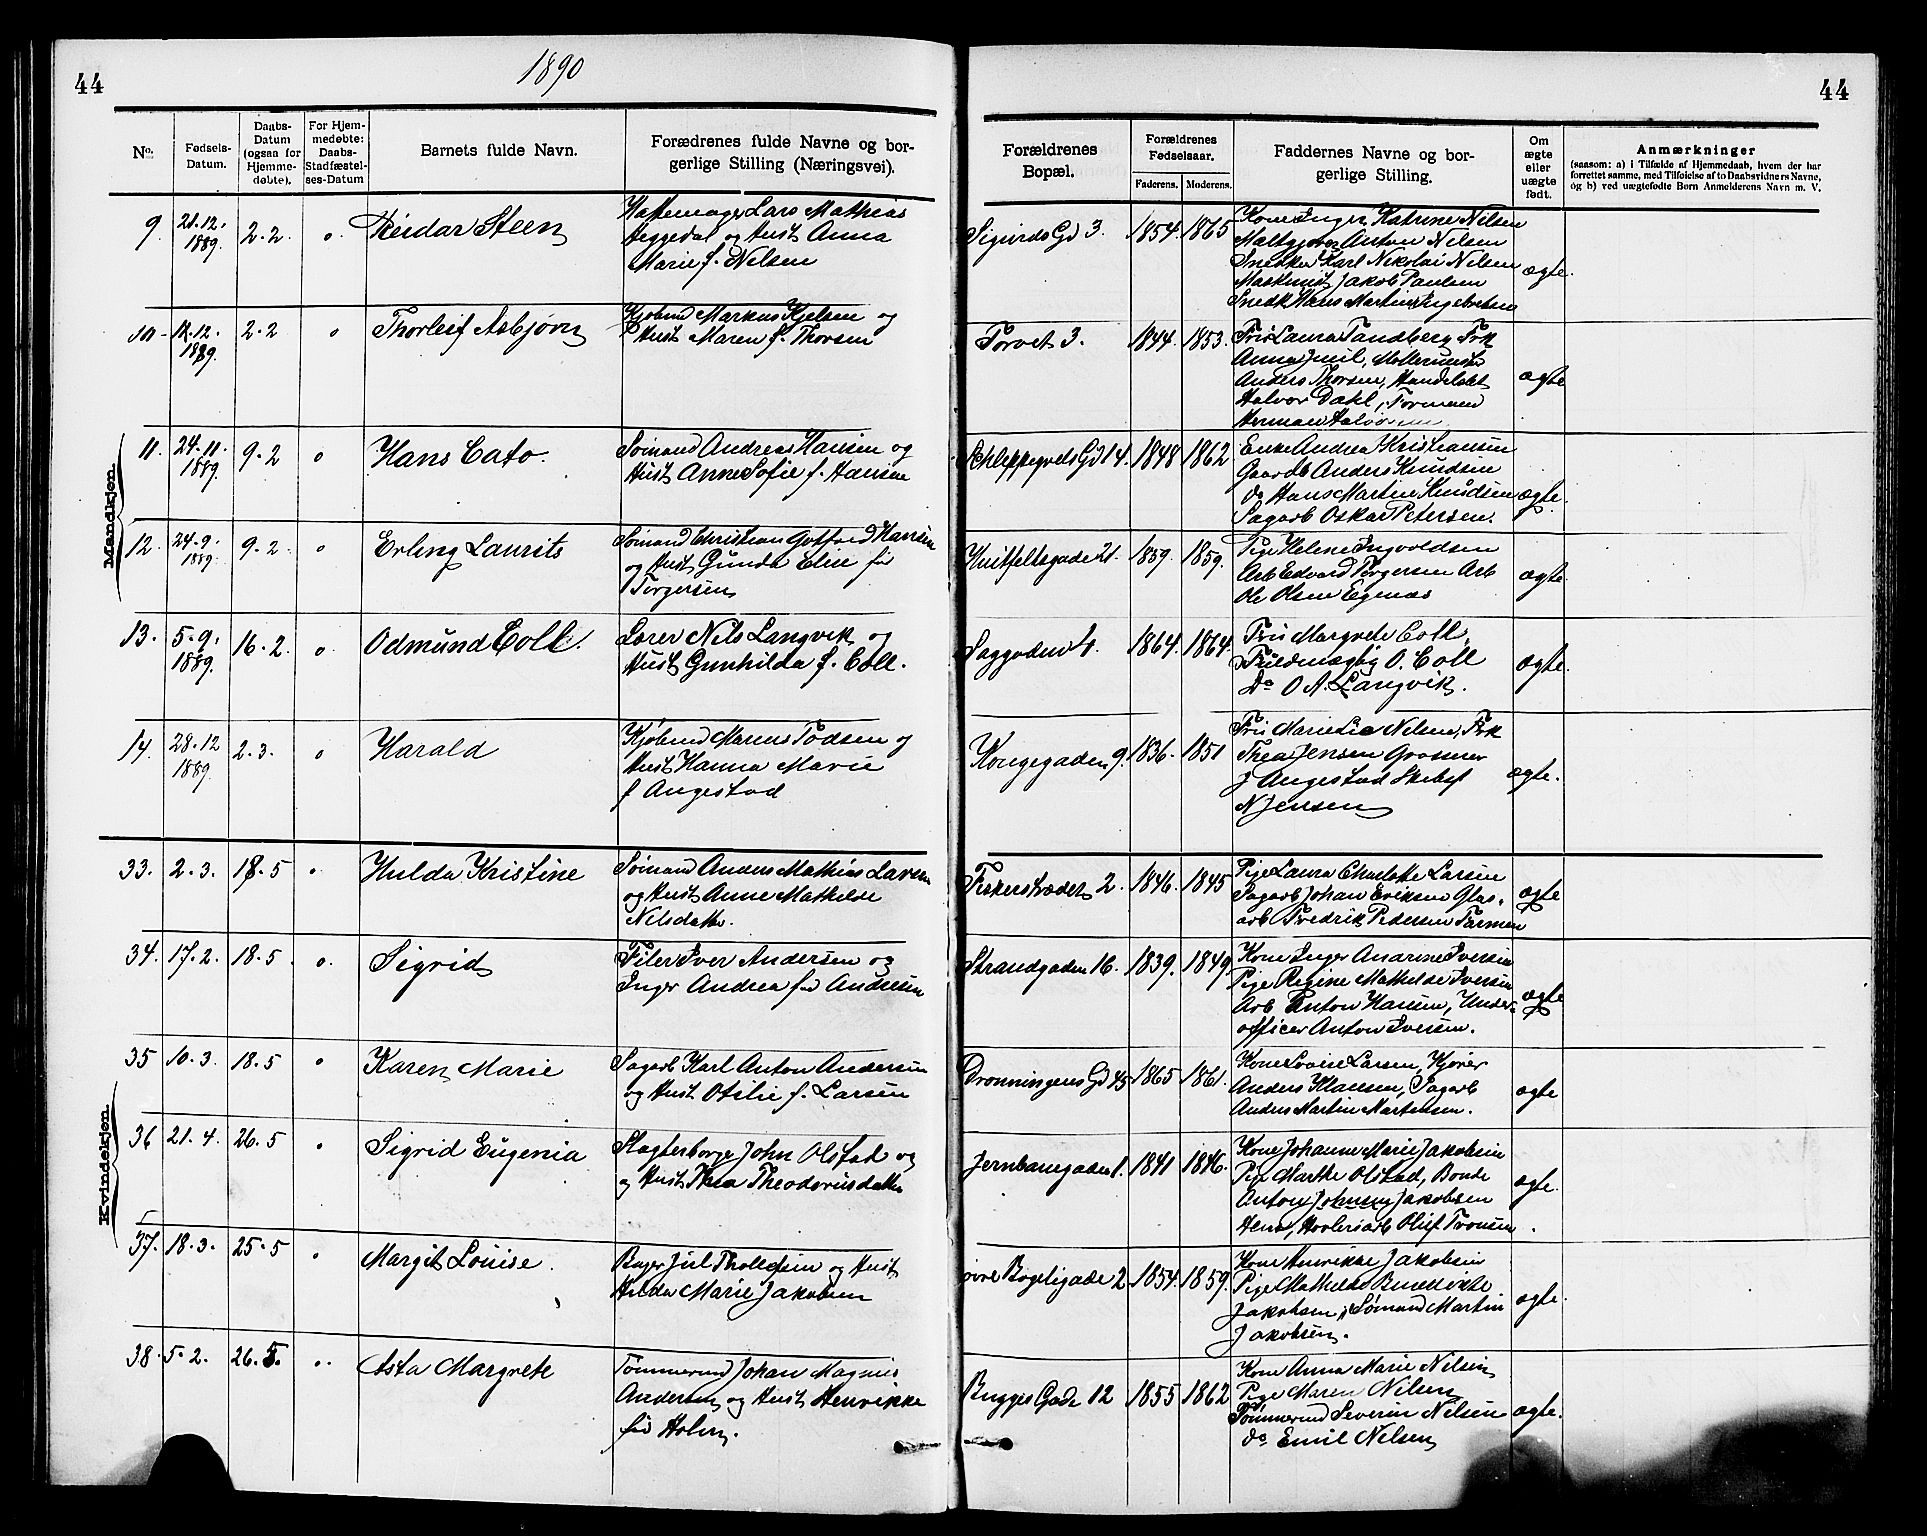 44
1890
44
No.
Fødsels-Datum.
Daabs-Datum (ogsaa for Hjemmedøbte).
For Hjemmedøbte: Daabs-Stadfæstelses-Datum
Barnets fulde Navn.
Forædrenes fulde Navne og borgerlige Stilling (Næringsvei).
Forældrenes Bopæl.
Forældrenes Fødselsaar.
Faderens.
Moderens.
Faddernes Navne og borgerlige Stilling.
Om ægte eller uægte født.
Anmærkninger
(saasom: a) i Tilfælde af Hjemmedaab, hvem der har
forrettet samme, med Tilføielse af to Daabsvidners Navne,
og b) ved uægtefødte Børn Anmelderens Navn m. V.
Mandkjøn
9. 21.12. 1889. 2.2. Reidar Steen
Hattemager Lars Mathias
Heggedal og Hust Anna
Marie f. Nilsen
Sigurds Gd 3. 1854. 1865
Kone Inger Katrine Nilsen
Maltgjører Anton Nilsen
Snedker Karl Nikolai Nilsen
Jakob Paulsen
Snedk Hans Martin Ingebretsen
ægte.
10 12.12. 1889. 2.2 Thorleif Asbjørn
Kjøbmd Markus Kjelsen og
Hust Maren f. Thorsen
Torvet 3. 1844. 1853.
Fru Laura Tandberg Frk
Anna Juul, Møllermester
Anders Thorsen, Handelsbt
Halvor Dahl,
Herman
ægte
11. 24.11. 1889. 9.2 Hans Cato.
Sømand Andreas Hansen og
Hust Anne Sofie f. Hansen
Schleppegrels Gd 14. 1848 1862
Enke Andrea Kristiansen
Gaardb Anders Knudsen
do Hans Martin Knudsen
Sagarb Oskar Petersen.
ægte.
12. 24.9. 1889. 9.2 Erling Laurits
Sømand Christian Gotfred Hansen
og Hust Gunda Elise fd
Torgersen
Huitfeltsgade 21. 1859. 1859.
Pige Helene Ingvoldsen
Arb Edvard Torgersen Arb
Ole Olsen Egenæs
ægte.
13. 5.9. 1889. 16.2. Odmund Coll.
Lærer Nils Langvik og
Hust Gunhilda f. Coll.
Saggaden 4. 1864. 1864.
Fru Margrete Coll,
O. Coll
Do O A. Langvik.
ægte.
14. 28.12 1889. 2.3. Harald
Kjøbmd Marius Tødsen og
Hust Hanna Marie
f Angestad
Kongegaden 9. 1836. 1851
Fru Marie Lie Nilsen, Frk
Thea Jensen Grosserer
J Angestad Skibsf
N Jensen
ægte.
Kvindekjøn
33. 2.3. 18.5 Hulda Kristine
Sømand Anders Mathias Larsen
og Hust Anne Mathilde
Nilsdatter.
Fiskerstrædet 2. 1846. 1845
Pige Laura Charlotte Larsen
Sagarb Johan Eriksen Glas-
arb Fredrik Pedersen Farmen
ægte
34. 17.2. 18.5 Sigrid
Filer Iver Andersen og
Inger Andrea fd Andresen
Strandgaden 16. 1839. 1849.
Kone Inger Andrine Iversen
Pige Regine Mathilde Iversen
Arb Anton Hansen, Under-
officer Anton Iversen.
ægte
35 10.3. 18.5 Karen Marie
Sagarb Karl Anton Andersen
og Hust Otilie f. Larsen
Dronningens Gd 45 1865 1861.
Kone Lovise Larsen, Kjører
Anders Klausen, Sagarb
Anders Martin Martinsen.
ægte
36 21.4. 26.5 Sigrid Eugenia
Slagterborger John Olstad og
og Hust Thea Theodorusdatter
Jernbanegaden 1. 1841 1846.
Kone Johanne Marie Jakobsen
Pige Marthe Olstad, Bonde
Anton Johnsen, Jakobsen
Høvleriarb Oluf Tronsen.
ægte.
37. 18.3. 25.5 Margit Louise.
Bager Juel Thollefsen og Hust
Hilda Marie Jakobsen
Øvre Bøgeligade 2 1854. 1859.
Kone Henrikke Jakobsen
Pige Mathilde Benedikte
Jakobsen, Sømand Martin
Jakobsen.
ægte.
38. 5.2. 26.5. Asta Margrete
Tømmermd Johan Magnus
Andersen og Hust Henrikke
fd Holm.
Bugges Gade 12 1855 1862
Kone Anna Marie Nilsen
Pige Maren Nilsen
Tømmermd Severin Nilsen
do Emil Nilsen
ægte.